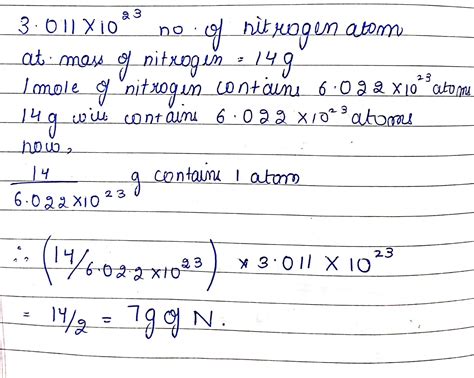 3.011 X 10²³ no. of nitrogen atom
at. mass of nitrogen = 14 g
1 mole of nitrogen contains 6.022 x 10²³ atoms
14 g will contains 6.022 x 10²³ atoms
now,
14/6.022 x 10²³ g contains 1 atom
∴ (14/6.022 x 10²³) x 3.011 X 10²³
= 14/2 = 7g of N.